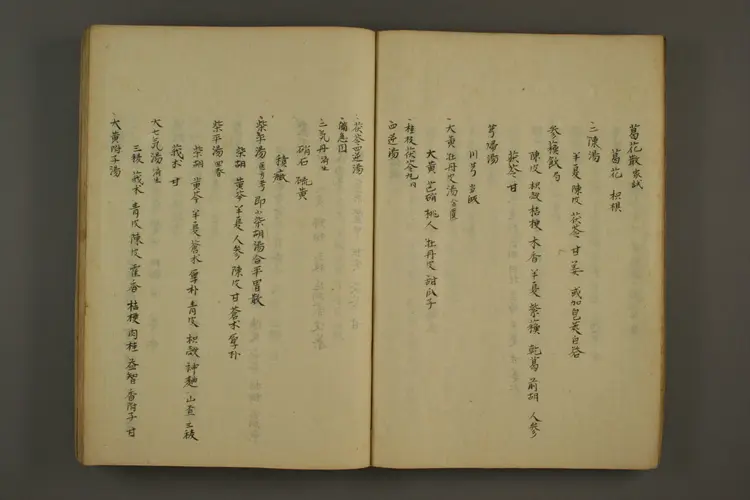 葛花散 家試
葛花 枳椇
二陳湯
半夏 陳皮 茯苓 甘 姜 或加皂莢白
参蘇飲 局
陳皮 枳殻 桔梗 木香 半夏 紫蘇 乾葛 前胡 人参
茯苓 甘
芎帰湯
川芎 当帰
大黄牡丹皮湯 金匱
大黄 芒硝 桃人 牡丹皮 甜瓜子
桂枝茯苓丸 同
四逆湯
茯苓四逆湯
二気丹 済生
硝石 硫黄
積癥
柴平湯 即小柴胡湯合平胃散
柴胡 黄芩 半夏 人参 陳皮 甘 蒼朮 厚朴
柴平湯 回春
柴胡 黄芩 半夏 蒼朮 厚朴 青皮 枳殻 神麯 山査 三稜
莪朮 甘
大七気湯 済生
三稜 莪朮 青皮 陳皮 霍香 桔梗 肉桂 益智 香附子 甘
大黄附子湯